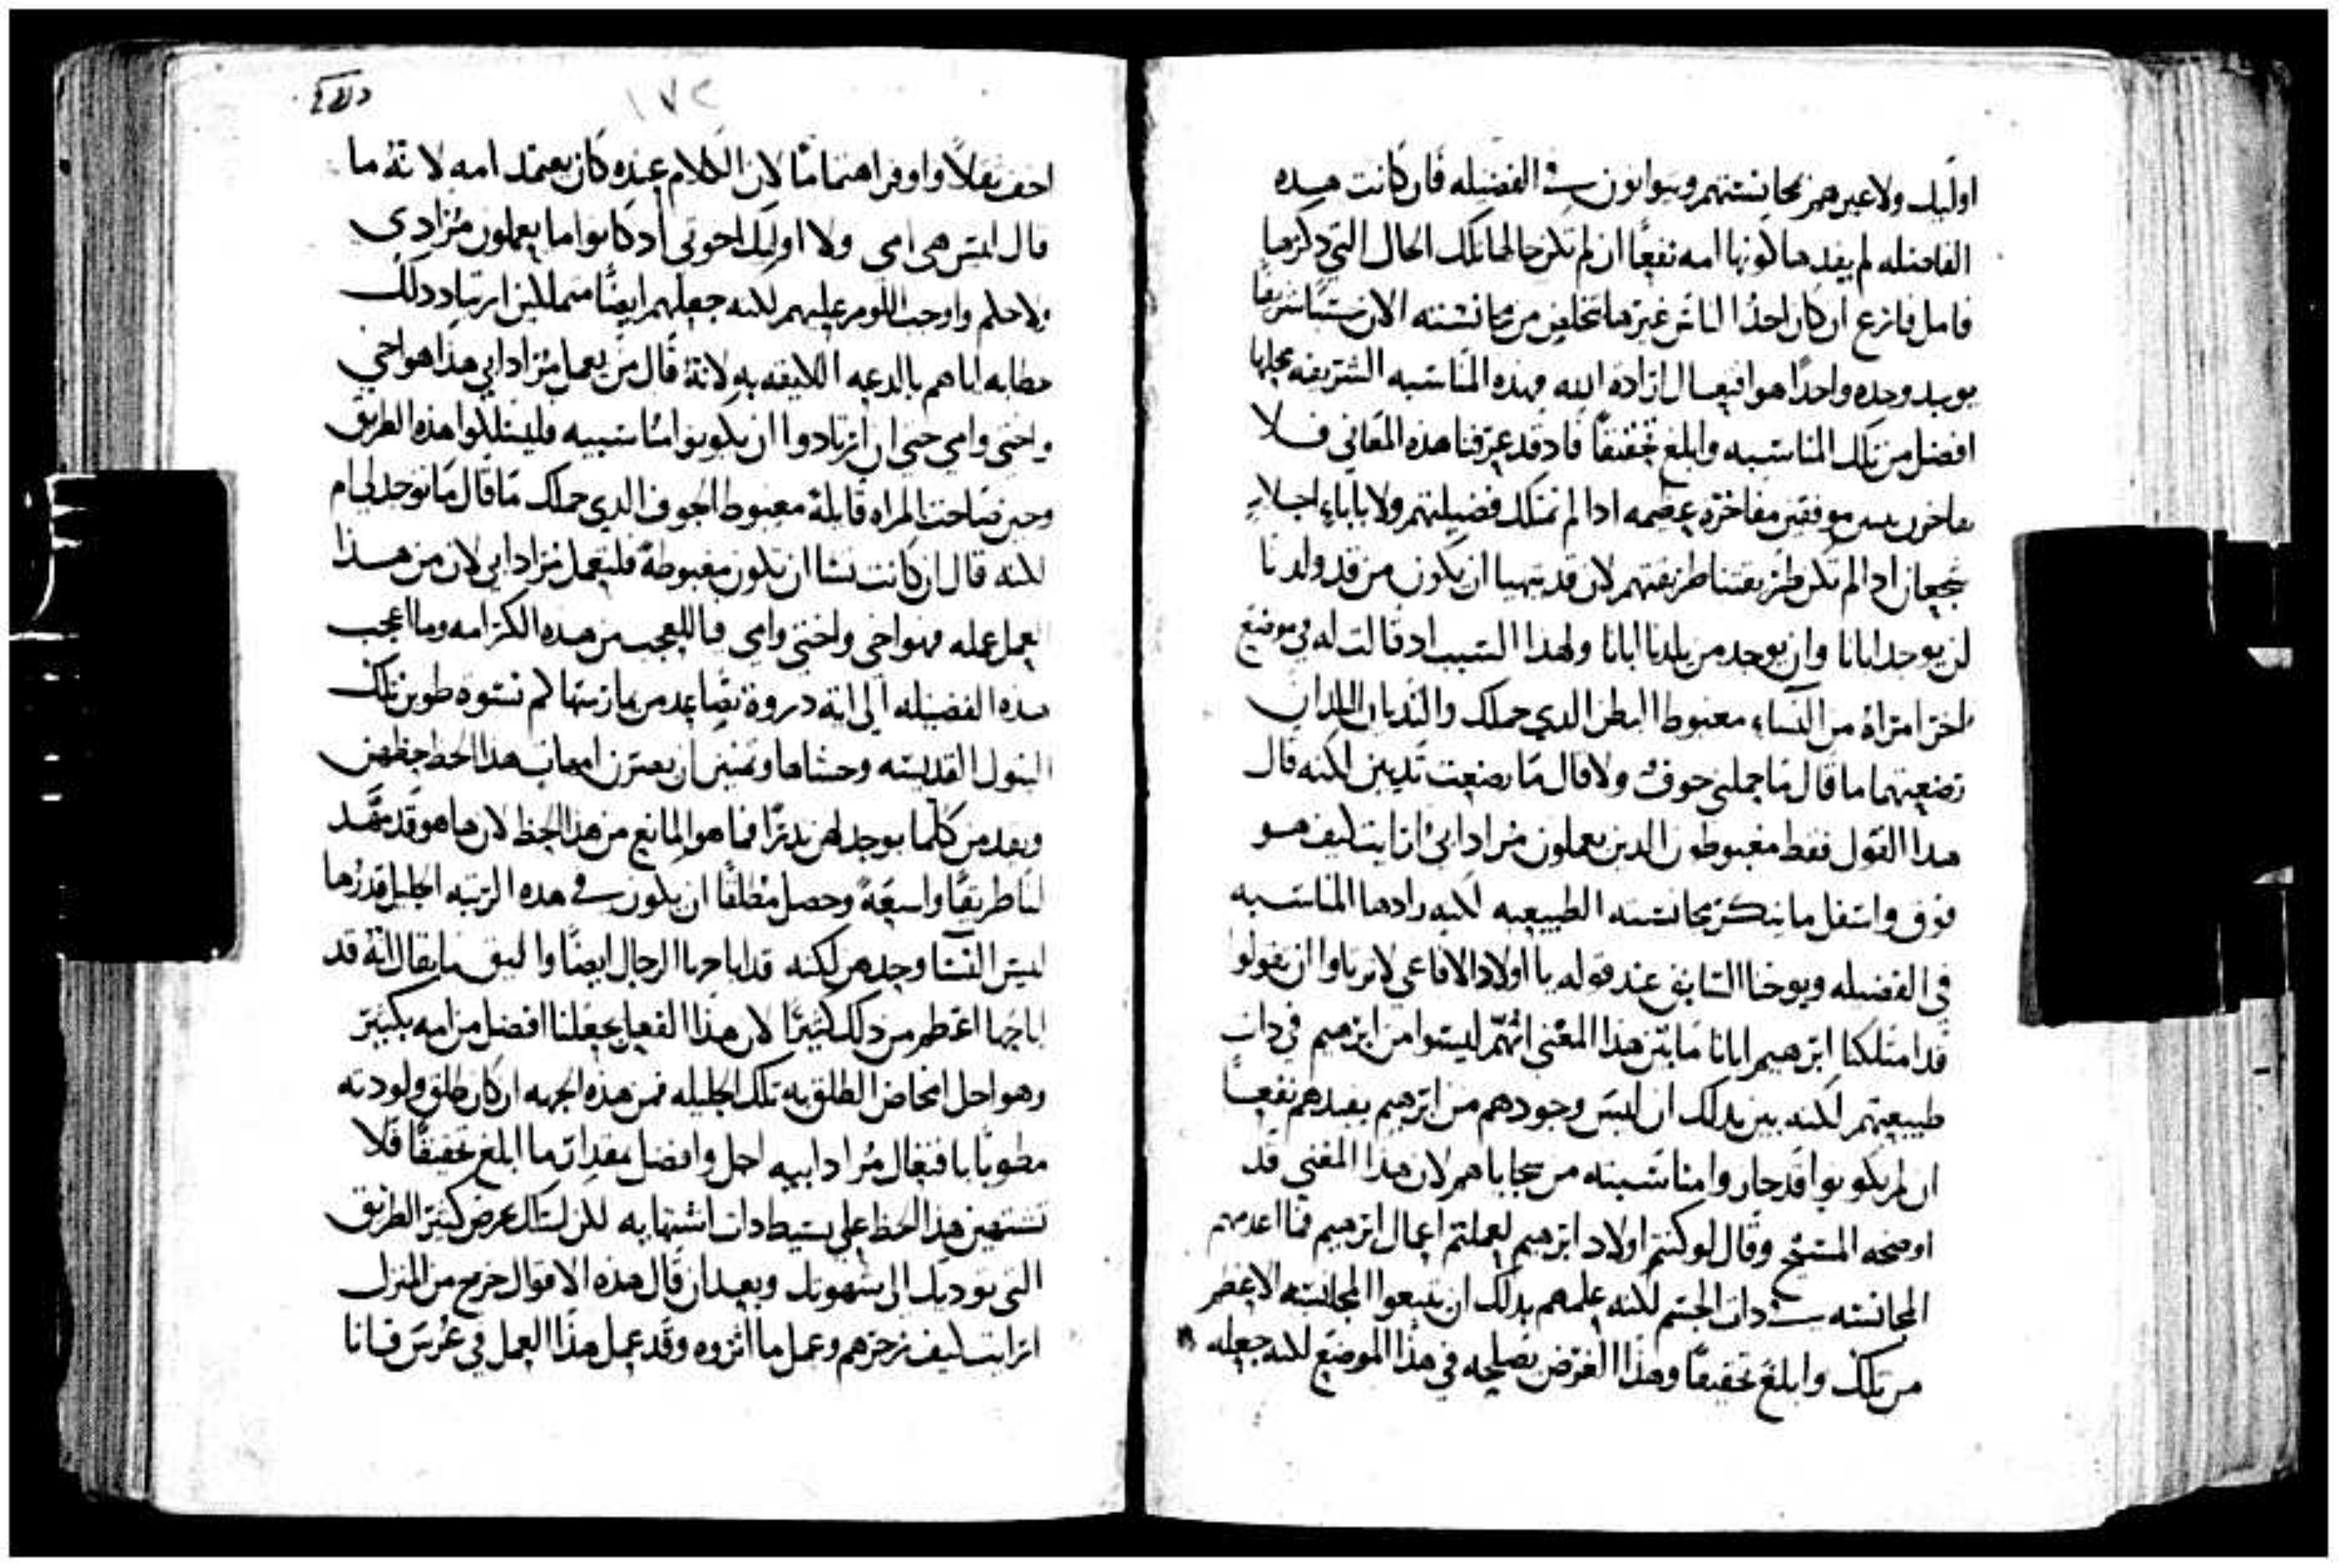 اوليك ولا غيرهم مجانستهم ويتوانون في الفضيله فان كانت هذه
الفاضله لم يفدها كونها امه نفعًا ان لم تكن حالها تلك الحال التي ذكرها
كان احدًا الناس غيرها من مجانسته الان نسبًا شريفًا
وحده واحدًا هو افتعال ارادة الله وهذه المناسبه الشريفه محلها
افضل من تلك المناسبه وابلغ تحقيقًا فاد قد عرفنا هذه المعاني فلا
مفاخرة عظمه ادا لم نمتلك فضيلتهم ولا باباء اجلاء
ادا لم تكن طريقتنا طريقتهم لان قد يتهيا ان يكون من قد ولدنا
لن يوجد ابانا وان يوجد من يلدنا ابانا ولهذا السبب اد قالت له في موضع
اخر امراة من النساء مغبوط البطن الدي حملك والثديان اللدان
رضعتهما ما قال ما حملني جوف ولا قال ما رضعت ثديين لكنه قال
هدا القول فقط مغبوطون الدين يعملون مراد ابي ارايت كيف هو
فوق واسفل ما ينكر مجانسته الطبيعيه لكنه زادها المناسبه
في الفضيله ويوحنا السابق عند قوله يا اولاد الافاعي لا ترتاوا ان تقولوا
قد امتلكنا ابرهيم ابانا ما بين هذا المعنى انهم ليسوا من ابرهيم في ذات
طبيعتهم لكنه بين بدلك ان ليس وجودهم من ابرهيم يفيدهم نفعًا
ان لم يكونوا قد حازوا مناسبته من سجاياهم لان هدا المعنى قد
اوضحه المسيح وقال لو كنتم اولاد ابرهيم لعملتم اعمال ابرهيم فما اعدمهم
المجانسه في ذات الجسم لكنه علمهم بدلك ان يتبعوا المجانسه الاعظم
من تلك وابلغ تحقيقًا وهذا الغرض يصلحه في هذا الموضع لكنه جعله
١٧٢
اخف ثقلًا واوفر اهتمامًا لان الكلام عنده كان يعتمد امه لانه ما
قال ليس هي امي ولا اوليك اخوتي اد كانوا ما يعملون مرادي
ولا حكم واوجب اللوم عليهم لكنه جعلهم ايضًا متملكين ارتياد دلك
خطابه اياهم بالدعه اللايقه به لانه قال من يعمل مراد ابي هذا هو اخي
واختي وامي حتى ان ارتادوا ان يكونوا مناسبيه فليسلكوا هذه الطريق
وحين صاحت المراه قايلة مغبوط الجوف الدي حملك ما قال ما توجد لي ام
لكنه قال ان كانت تشا ان تكون مغبوطة فلتعمل مراد ابي لان من هذا
العمل عمله فهو اخي واختي وامي فيا للعجب من هذه الكرامه وما اعجب
هذه الفضيله الى اية دروة تصاعد من مارستها كم نسوة طوبن تلك
البتول القديسه وحشاها وتمنين ان يصرن امهات هذا الحظ حظهن
ويعدمن كلما يوجد لهن فما هو المانع من هذا الحظ لان ها هو قد مهد
لنا طريقًا واسعة وحصل مطلقًا ان يكون في هذه الرتبه الجليل قدرها
ليس النسا وحدهن لكنه قد اباحها الرجال ايضًا واليق ما يقال انه قد
اباحها اعظم من دلك كثيرًا لان هذا الفعل يجعلنا افضل من امه بكثير
وهو اجل المخاض الطلق به تلك الجليله فمن هذه الجهه ان كان طلق ولودته
مطوبًا بافتعال مراد ابيه اجل وافضل مقدار ما ابلغ تحقيقًا فلا
تشتهين هذا الحظ على بسيط دات اشتهايه لكن اسلك بحرص كثير الطريق
التي توديك الى شهوتك وبعد ان قال هذه الاقوال خرج من المنزل
ارايت كيف زجرهم وعمل ما اثروه وقد عمل هذا العمل في عرس قانا